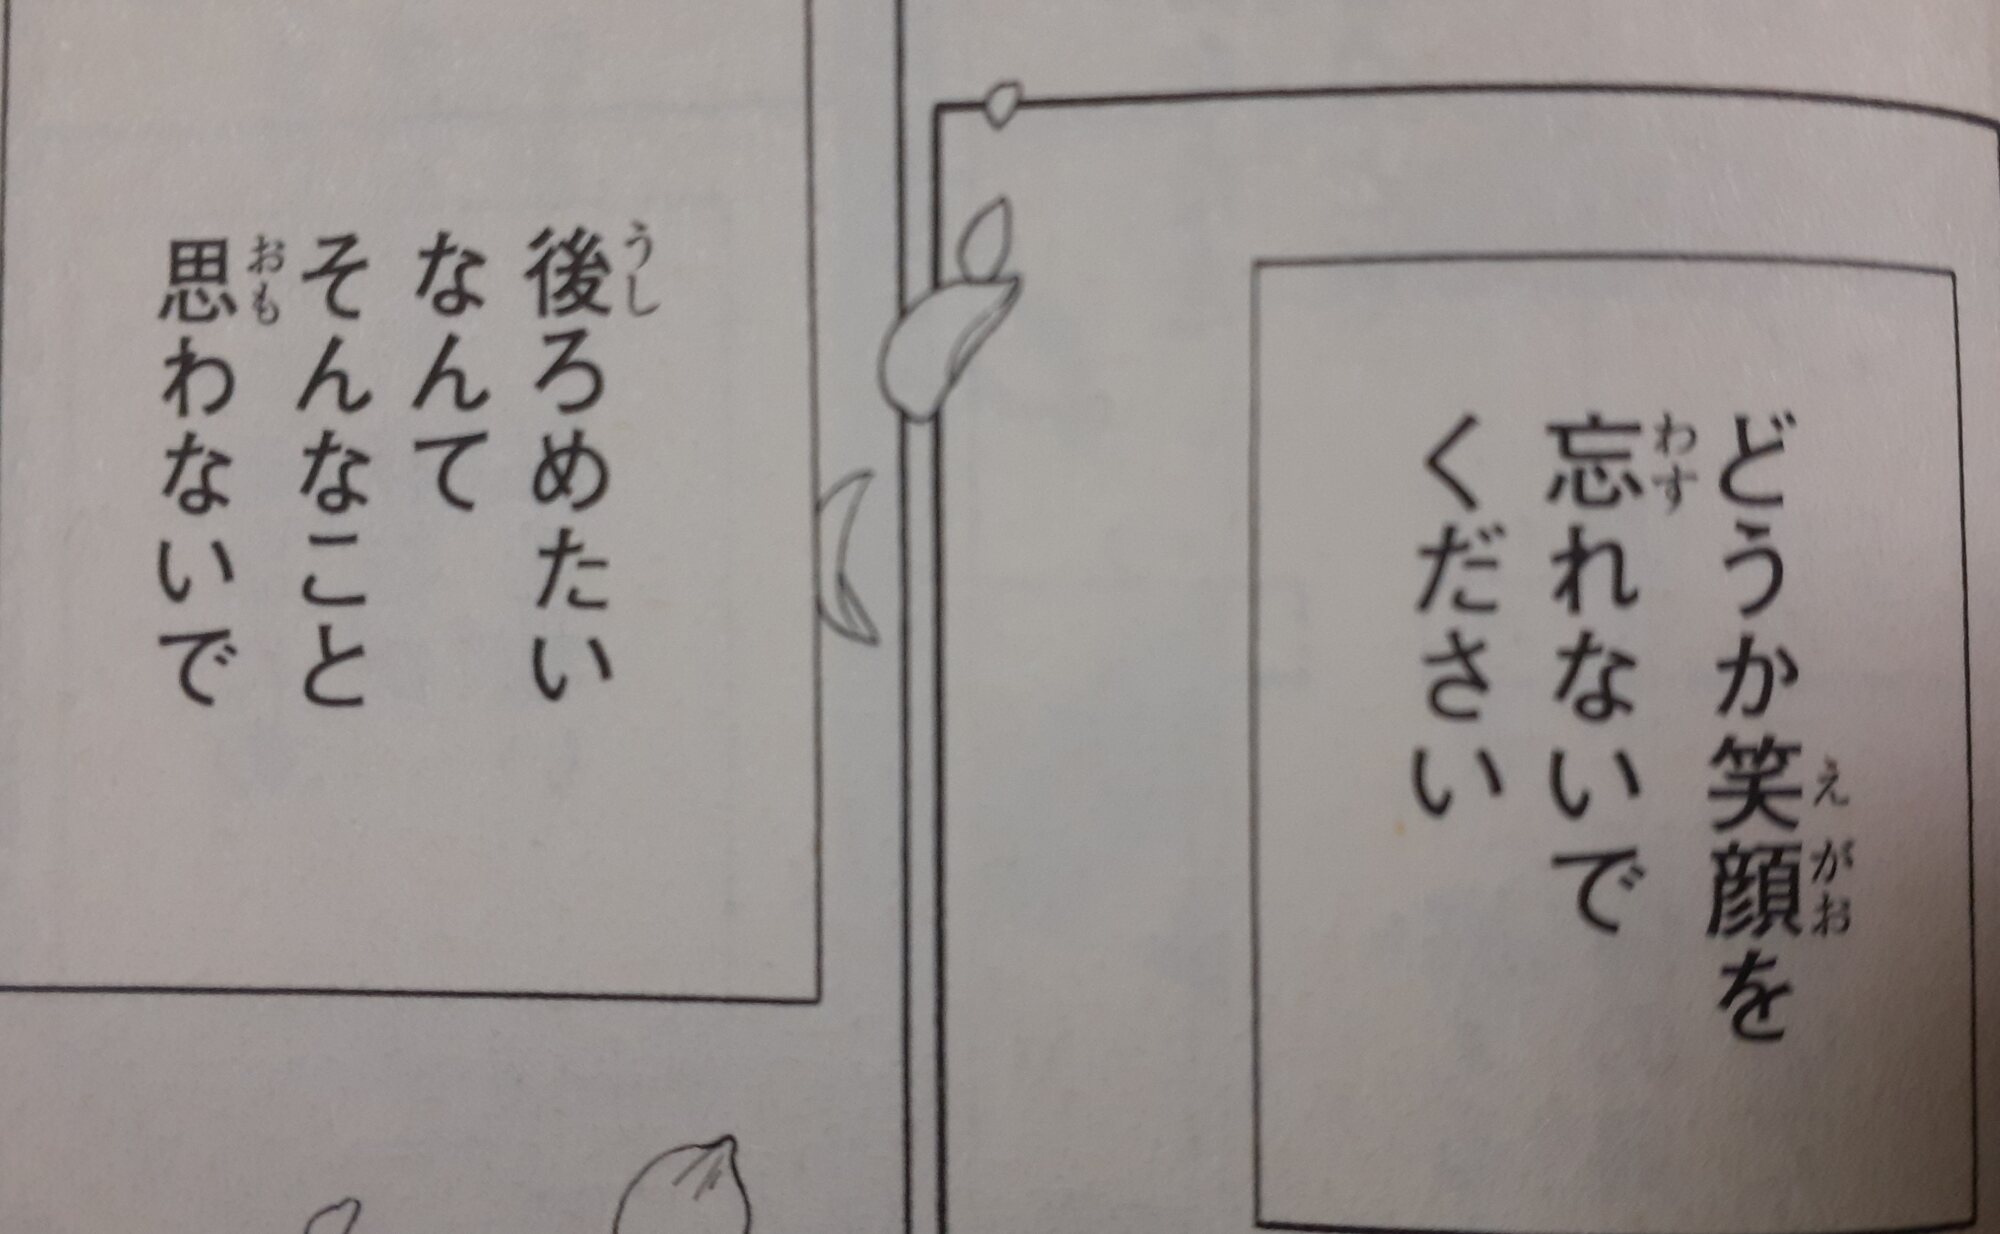 どうか笑顔を
忘れないで
ください
後ろめたい
なんて
そんなこと
思わないで